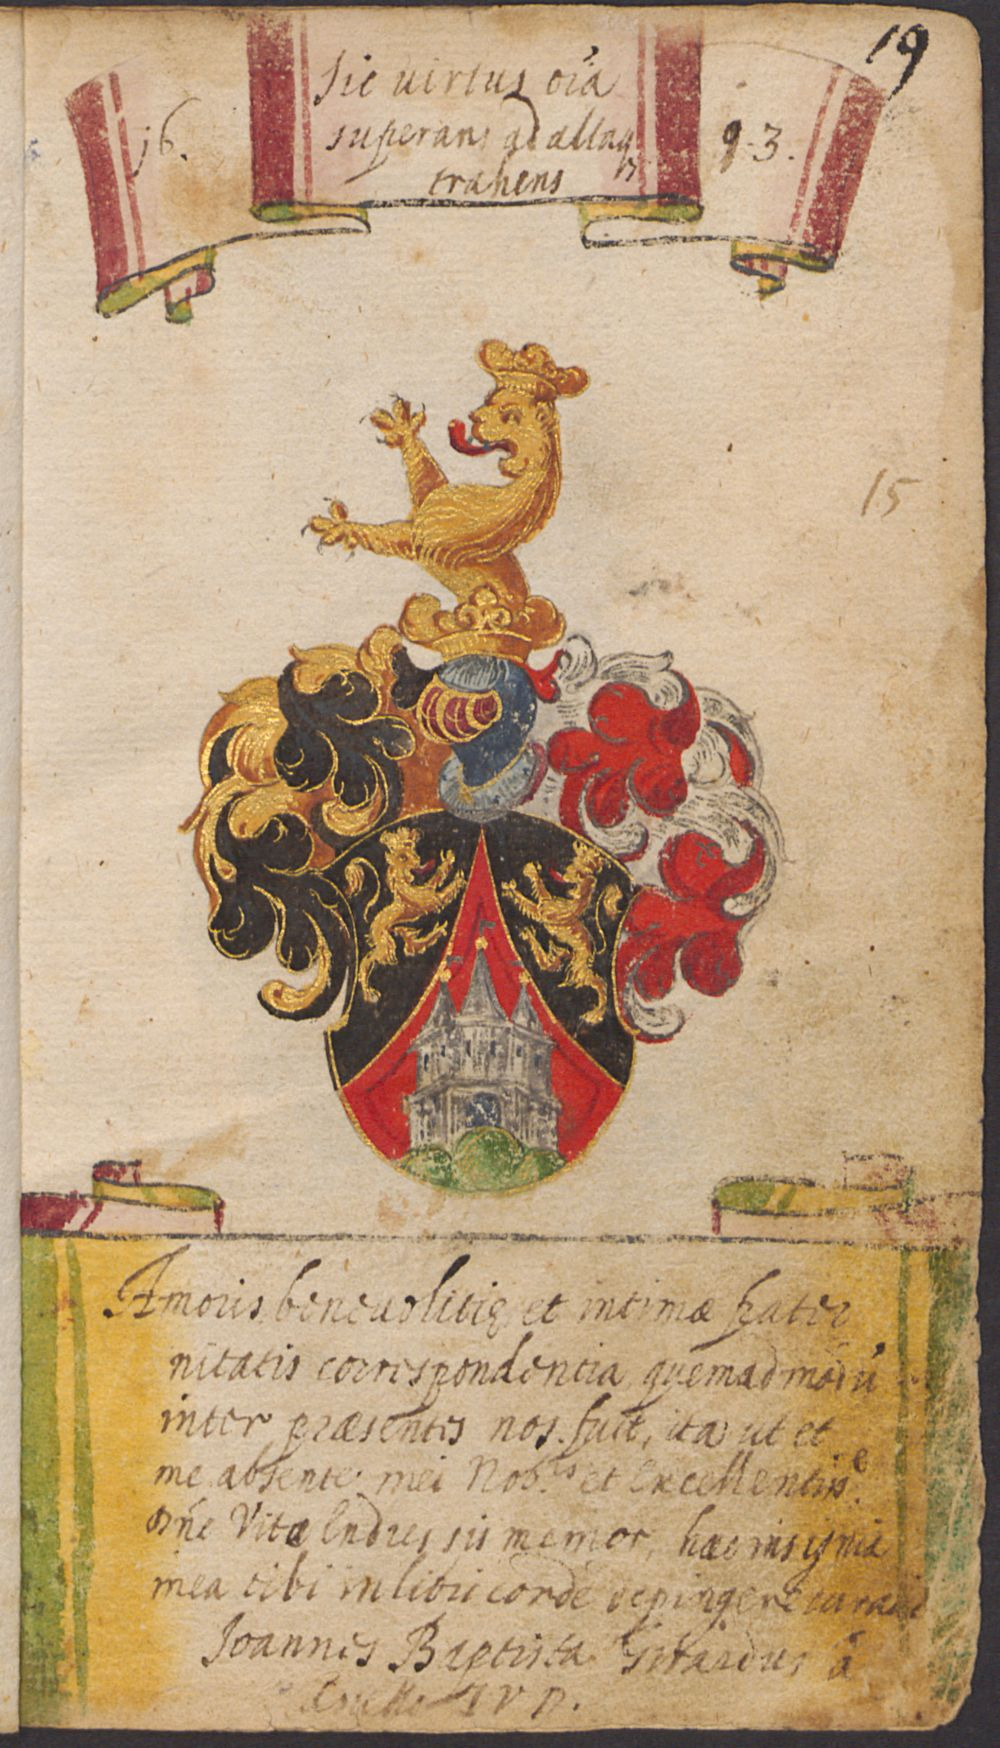 19
Sic virtus oĩa
superans ad allaq
trahens
j6. 93.
15
Amoris, benevolitiæ, et intimæ frater
nitatis correspondentia, quemadmodũ
inter præsentes nos fuit, ita ut et
me absente mei Nob.is et Excellentiss.e
Dñe Vitæ Endres sis memor, hæc insignia
mea tibi in libri corde depingere curavi
Joannes Baptista Girardus à